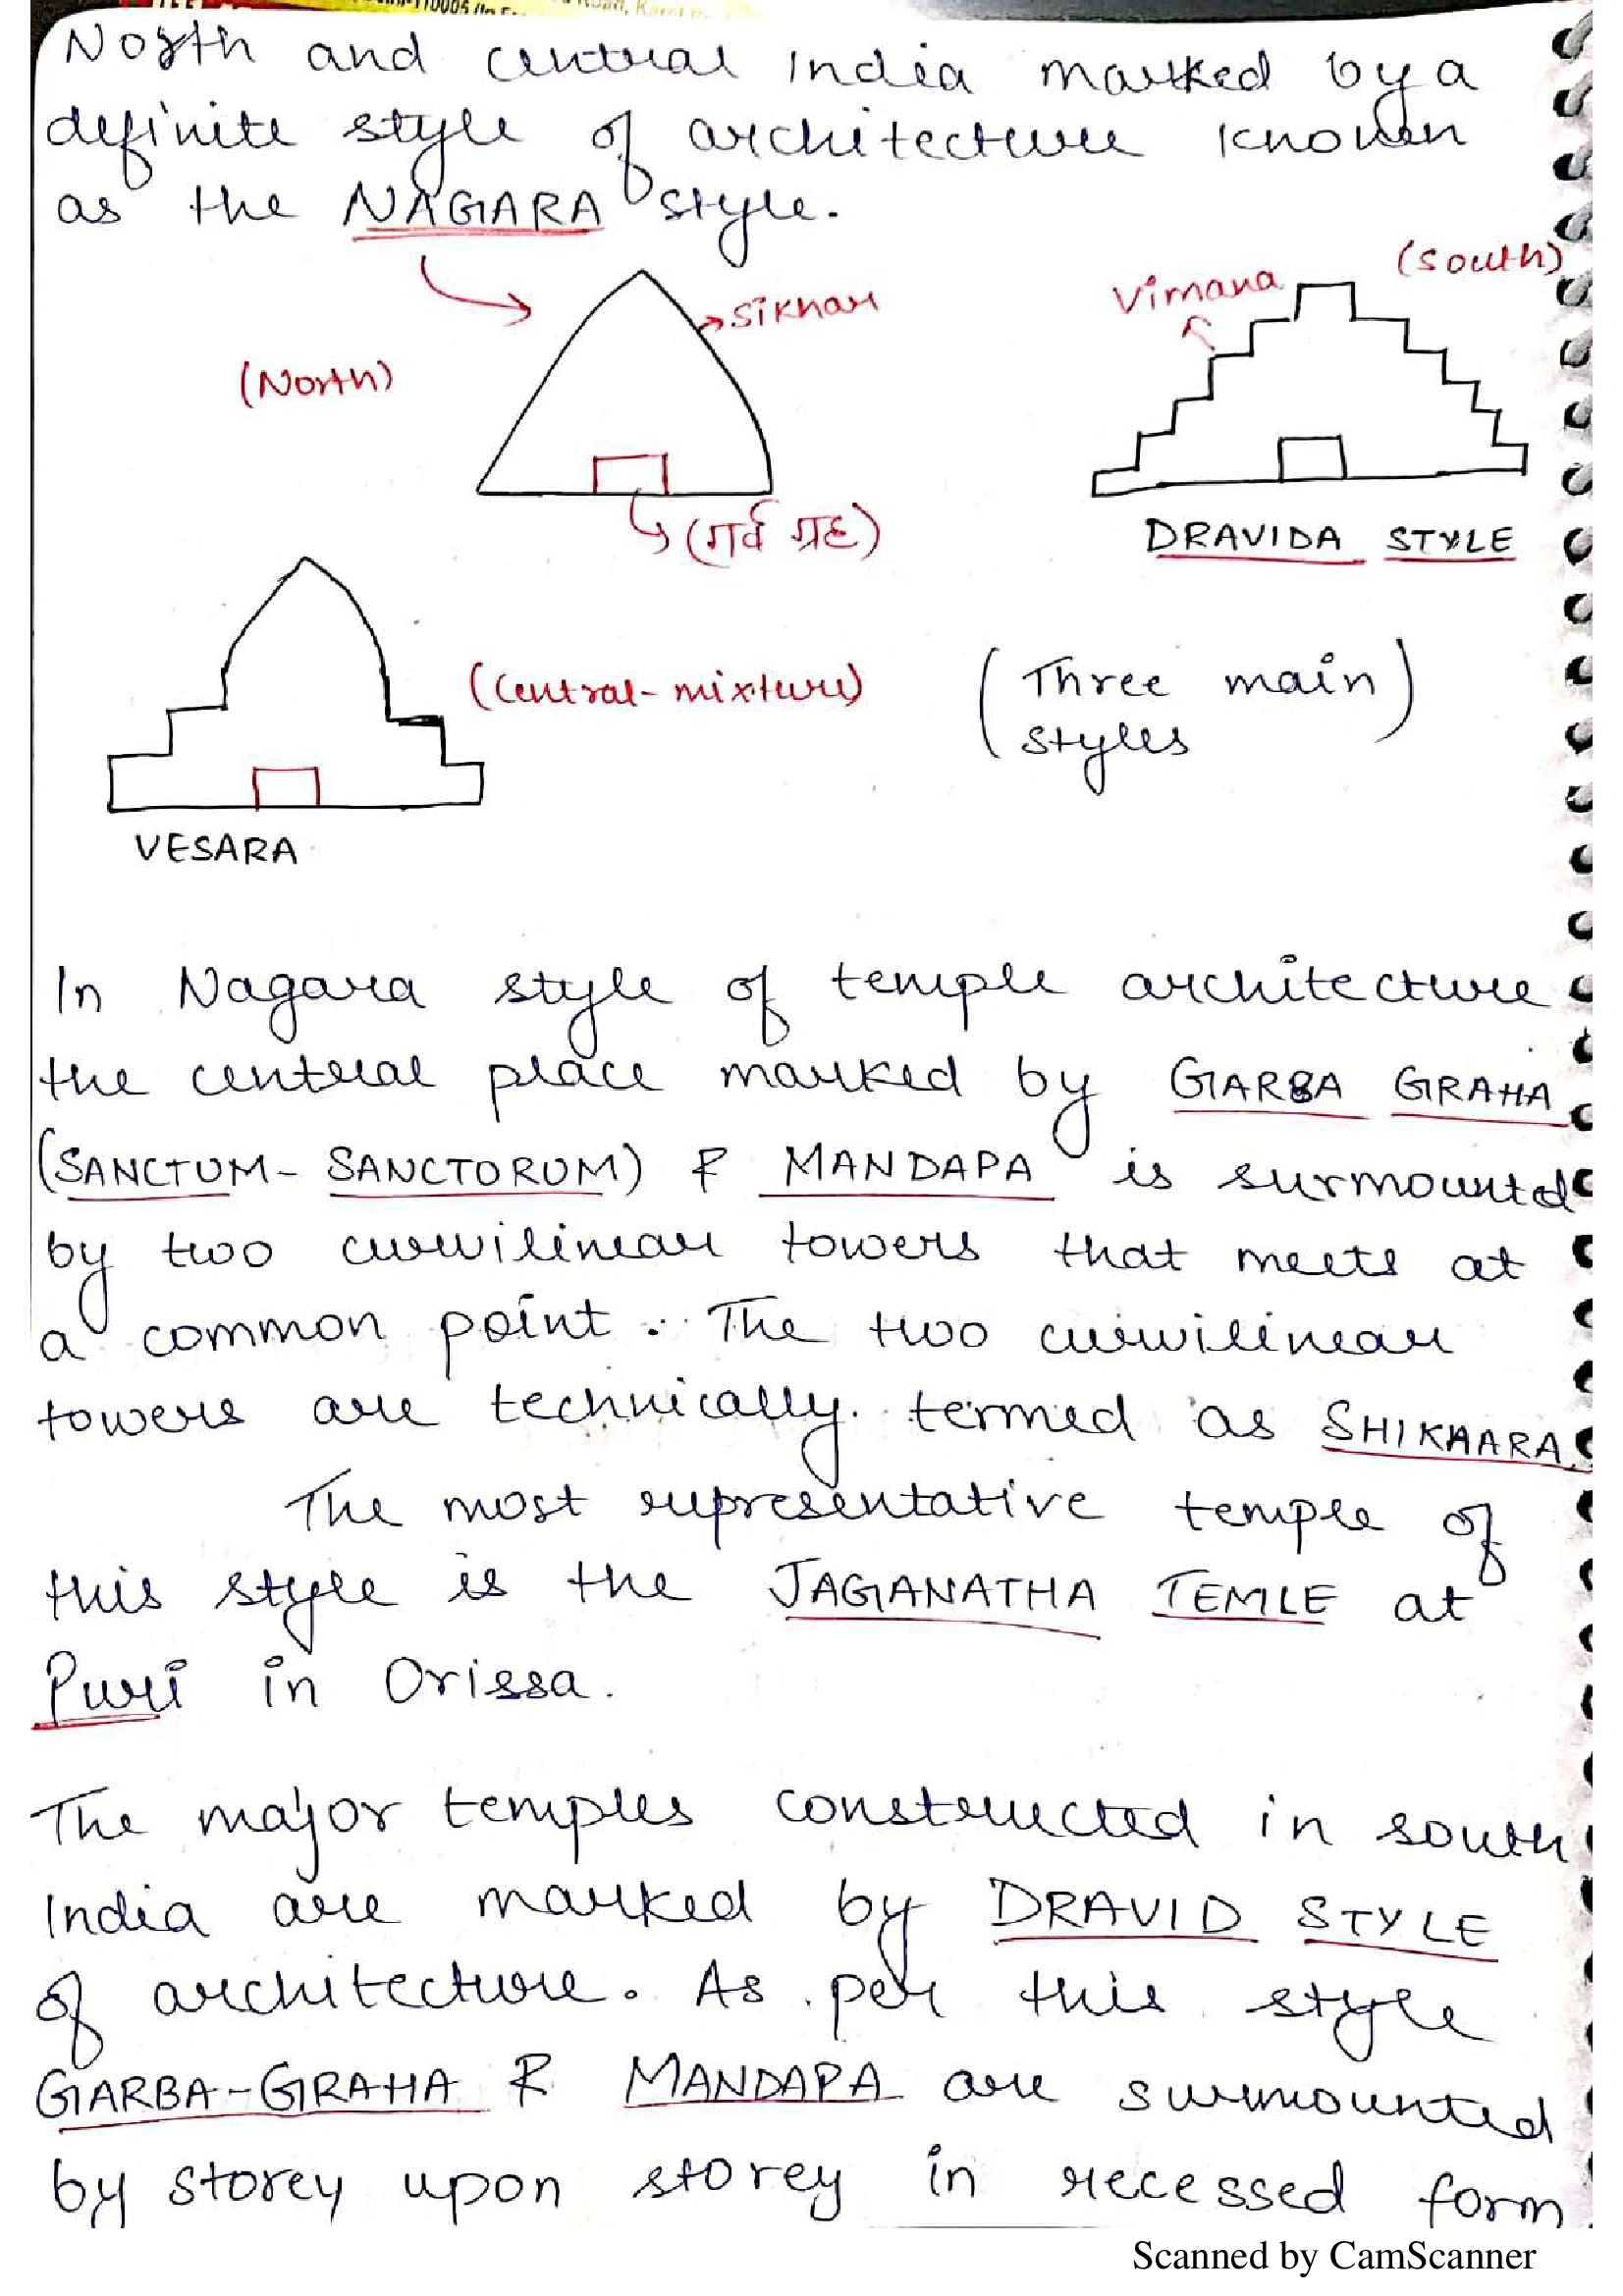 North and central India marked by a
definite style of architecture known
as the NAGARA style.
(South)
Vimana
Sikhar
(North)
(गर्व ग्रह)
DRAVIDA STYLE
(Central-mixture)
(Three main
styles)
VESARA
In Nagara style of temple architecture
the central place marked by GARBA GRAHA
(SANCTUM-SANCTORUM) & MANDAPA is surmounted
by two curvilinear towers that meets at
a common point. The two curvilinear
towers are technically termed as SHIKHARA
The most representative temple of
this style is the JAGANATHA TEMLE at
Puri in Orissa.
The major temples constructed in south
India are marked by DRAVID STYLE
of architecture. As per this style
GARBA-GRAHA & MANDAPA are surmounted
by storey upon storey in recessed form
Scanned by CamScanner